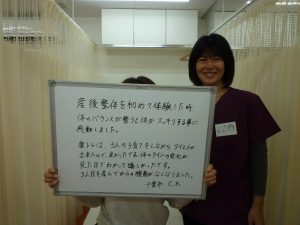 産後整体を初めて体験した時
体のバランスが整うと体がスッキリする事に
感動しました。
筋トレは、3人の子育てをしながらダイエットが
出来たので良かったです。体のラインの変化が
見た目でわかって嬉しかったです。
3人目を産んでからの腰痛がなくなりました。
C.K